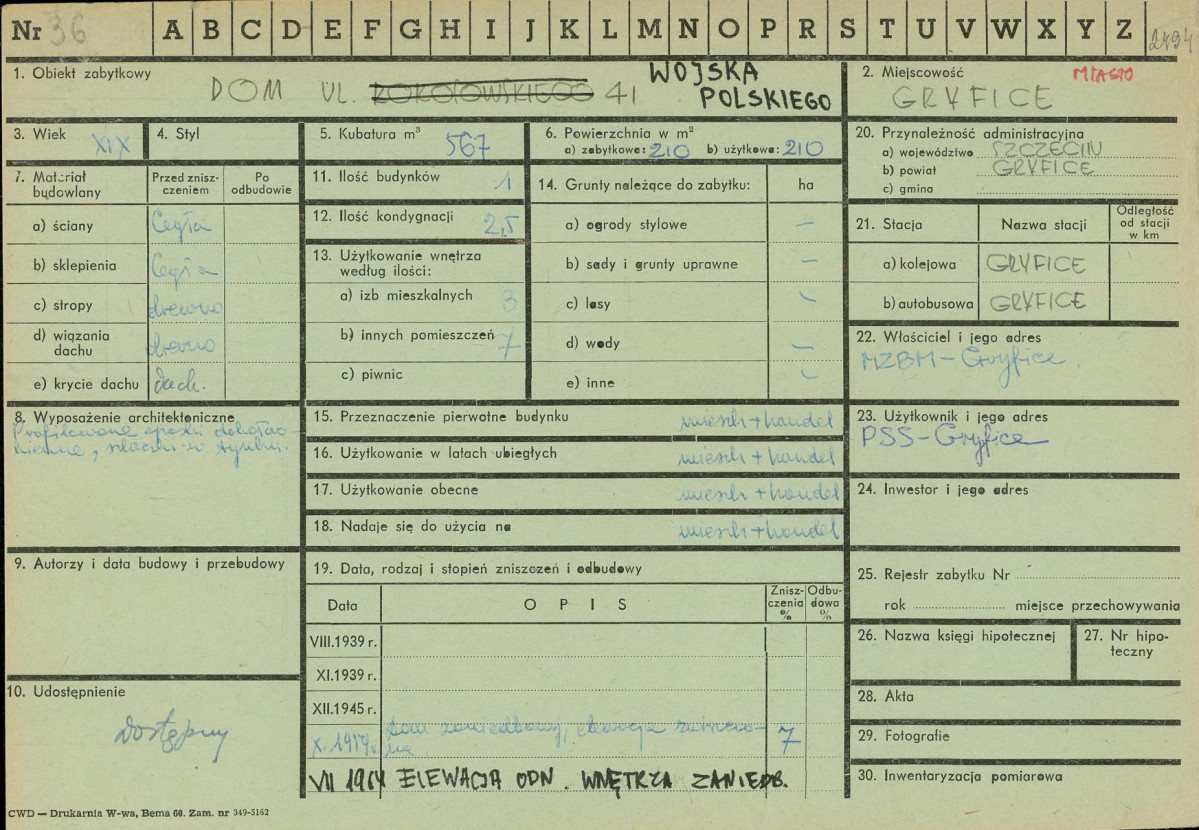 Nr 36 A B C D E F G H I J K L M N O P R S T U V W X Y Z 2494
1. Obiekt zabytkowy
DOM UL. ROKOSOWSKIEGO 41 WOJSKA
POLSKIEGO
2. Miejscowość MIASTO
GRYFICE
3. Wiek XIX
4. Styl
5. Kubatura m³ 567
6. Powierzchnia w m²
a) zabytkowa: 210 b) użytkowa: 210
20. Przynależność administracyjna
a) województwo SZCZECIN
b) powiat GRYFICE
c) gmina
7. Materiał budowlany
Przed zniszczeniem
Po odbudowie
a) ściany Cegła
b) sklepienia Cegła
c) stropy drewno
d) wiązania dachu drewno
e) krycie dachu dach.
11. Ilość budynków 1
12. Ilość kondygnacji 2,5
13. Użytkowanie wnętrza
według ilości:
a) izb mieszkalnych 3
b) innych pomieszczeń 7
c) piwnic
14. Grunty należące do zabytku: ha
a) ogrody stylowe —
b) sady i grunty uprawne —
c) lasy —
d) wody —
e) inne —
21. Stacja
Nazwa stacji
Odległość od stacji w km
a) kolejowa GRYFICE
b) autobusowa GRYFICE
22. Właściciel i jego adres
MZBM - Gryfice
8. Wyposażenie architektoniczne
Profilowane opaski dokoła
15. Przeznaczenie pierwotne budynku mieszk + handel
16. Użytkowanie w latach ubiegłych mieszk + handel
17. Użytkowanie obecne mieszk + handel
18. Nadaje się do użycia na mieszk + handel
23. Użytkownik i jego adres
PSS - Gryfice
24. Inwestor i jego adres
9. Autorzy i data budowy i przebudowy
19. Data, rodzaj i stopień zniszczeń i odbudowy
Data
OPIS
Zniszczenia %
Odbudowa %
VIII.1939 r.
XI.1939 r.
XII.1945 r.
X. 1959 r. dom zaniedbany, elewacja zniszczo-
na. 7
VII 1964 ELEWACJA ODN. WNĘTRZA ZANIEDB.
25. Rejestr zabytku Nr
rok miejsce przechowywania
26. Nazwa księgi hipotecznej
27. Nr hipoteczny
10. Udostępnienie
dostępny
28. Akta
29. Fotografie
30. Inwentaryzacja pomiarowa
CWD — Drukarnia W-wa, Bema 60. Zam. nr 349-5162